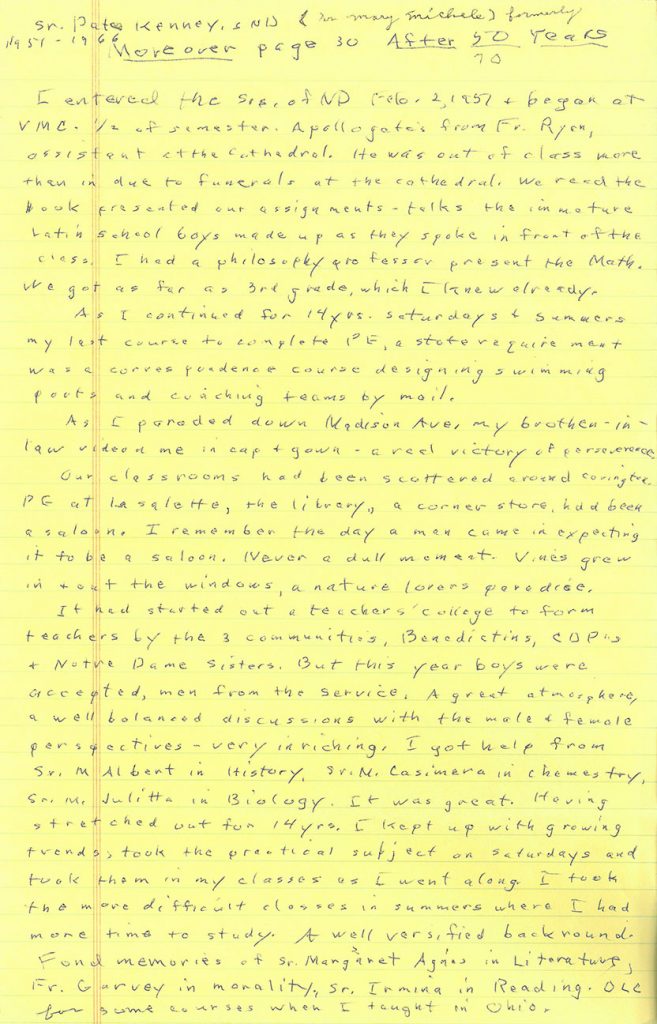 Sr. Patea Kenney, SND (Sr Mary Michele) formerly
1951-1966 Moreover page 30 After 50 Years
70
I entered the Srs. of ND Febr. 2, 1951 & began at
VMC. 1/2 of semester. Apollogate's from Fr. Ryan,
assistant at the Cathedral. He was out of class more
than in due to funerals at the cathedral. We read the
book presented our assignments - talks the immature
Latin school boys made up as they spoke in front of the
class. I had a philosophy professor present the Math.
We got as far as 3rd grade, which I knew already.
As I continued for 14 yrs. saturdays & summers
my last course to complete PE, a state requirement
was a correspondence course designing swimming
pools and coaching teams by mail.
As I paraded down Madison Ave, my brother-in-
law videod me in cap & gown - a real victory of perseverence
Our classrooms had been scattered around covington.
PE at Lasalette, the library, a corner store, had been
a saloon. I remember the day a man came in expecting
it to be a saloon. Never a dull moment. Vines grew
in & out the windows, a nature lovers paradise.
It had started out a teachers' college to form
teachers by the 3 communities, Benedictins, CDP's
& Notre Dame Sisters. But this year boys were
accepted, men from the service. A great atmosphere,
a well balanced discussions with the male & female
perspectives - very inriching. I got help from
Sr. M Albert in History, Sr. M. Casimera in Chemestry,
Sr. M. Julitta in Biology. It was great. Having
stretched out for 14 yrs. I kept up with growing
trends, took the practical subject on saturdays and
took them in my classes as I went along. I took
the more difficult classes in summers where I had
more time to study. A well versified backround.
Fond memories of Sr. Margaret Agnes in Literature,
Fr. Garvey in morality, Sr. Irmina in Reading. OLC
for some courses when I taught in Ohio.